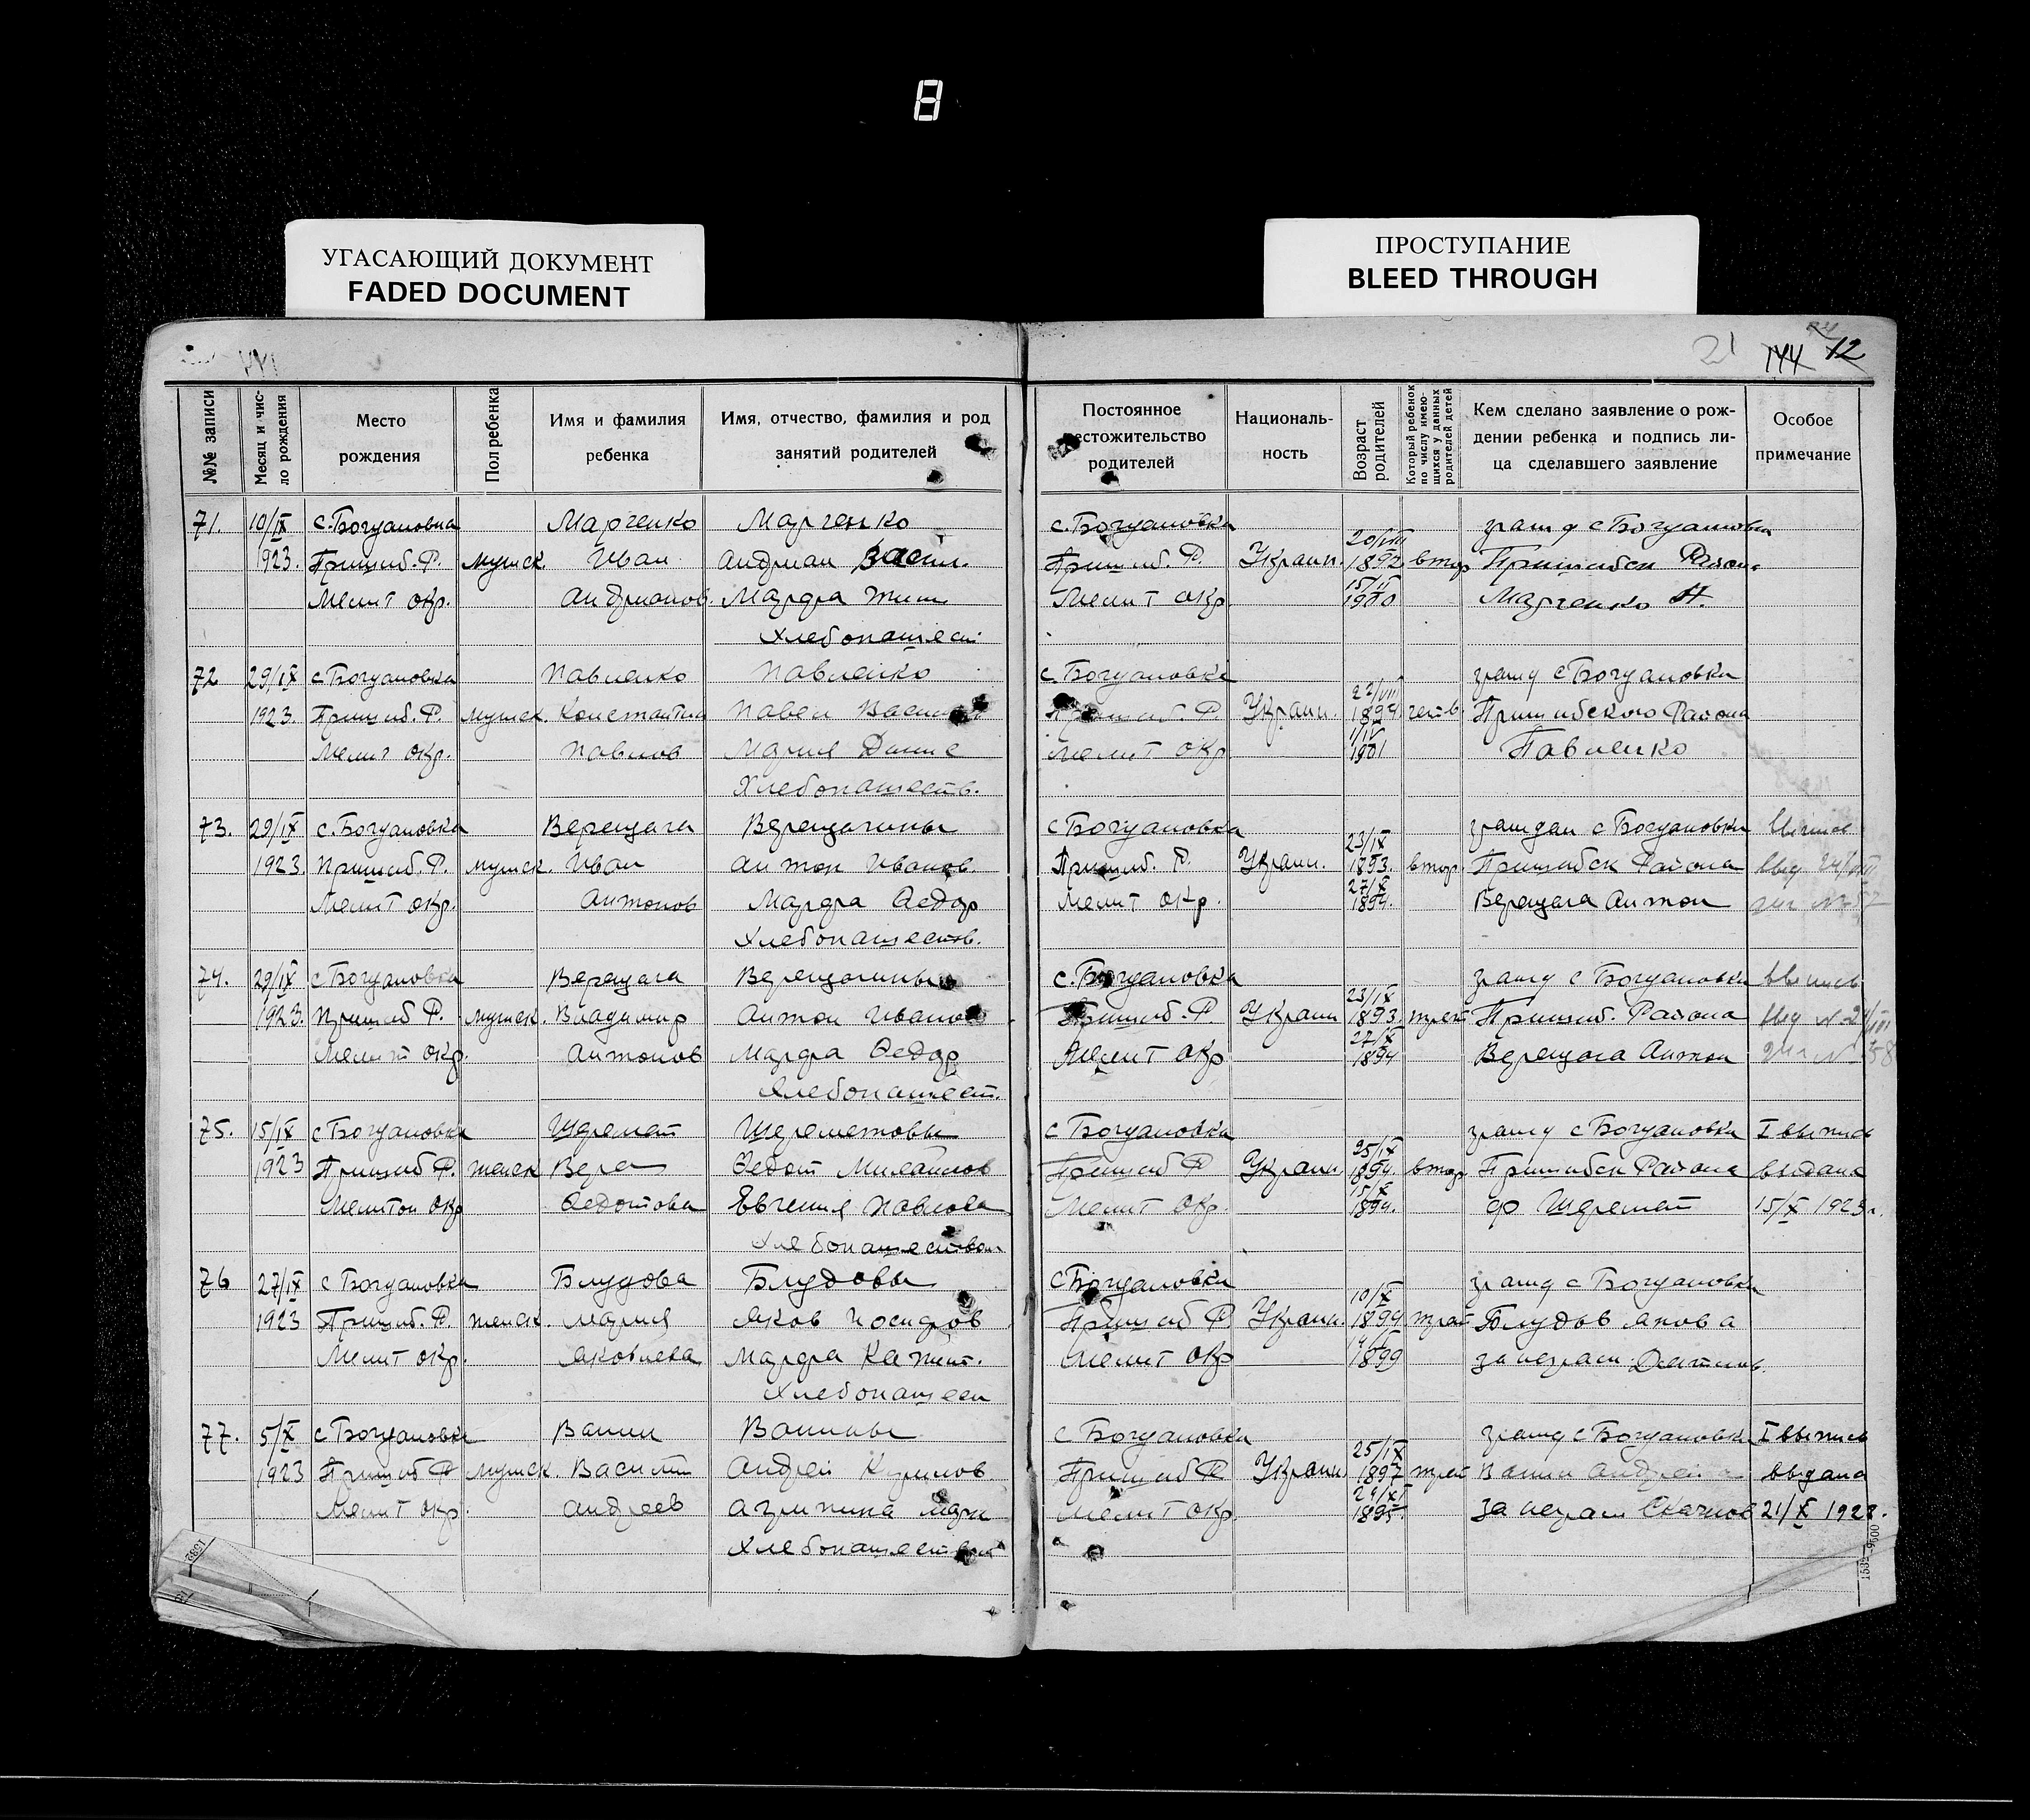 8
УГАСАЮЩИЙ ДОКУМЕНТ
FADED DOCUMENT
ПРОСТУПАНИЕ
BLEED THROUGH
21 144 12
№№ записи
Месяц и чис-
ло рождения
Место
рождения
Пол ребенка
Имя и фамилия
ребенка
Имя, отчество, фамилия и род
занятий родителей
Постоянное
местожительство
родителей
Националь-
ность
Возраст
родителей
Который ребенок
по числу имею-
щихся у данных
родителей детей
Кем сделано заявление о рож-
дении ребенка и подпись ли-
ца сделавшего заявление
Особое
примечание
71. 10/IX с.Богдановка Марченко Марченко с.Богдановка 20/VIII гражд с Богдановки
1923. Пришиб. Р. мужск. Иван Андриан Васил. Пришиб. Р. Украин. 1892 втор Пришибск Район.
Мелит окр. Андрианов. Марфа Мелит окр. 1900 Марченко А.
Хлебопашест.
72 29/IX с Богдановка Павленко Павленко с Богдановка 22/VIII гражд с Богдановки
1923. Пришиб. Р. мужск. Константин Павел Р. Украин. 1894 четв. Пришибского Района
Мелит окр. Павлов Мария Мелит окр 1901 Павленко
Хлебопашеств.
73. 29/IX с.Богдановка Верещага Верещагины с Богдановка 23/IX граждан с Богдановки
1923. Пришиб. Р. мужск. Иван Антон Иванов. Пришиб. Р. Украин. 1893. втор. Пришибск Района
Мелит окр. Антонов Марфа Федор Мелит окр. 27/X 1894. Верещага Антон
Хлебопашеств.
74. 29/IX с Богдановка Верещага Верещагины с.Богдановка 23/IX гражд с Богдановки
1923. Пришиб Р. мужск. Владимир Антон Иванов Пришиб. Р. Украин 1893 трет Пришиб. Района
Мелит окр. Антонов Марфа Федор Мелит окр 27/X 1894 Верещага Антон
Хлебопашест.
75. 15/IX с Богдановка Шеремет Шереметовы с Богдановка 25/IX гражд с Богдановки I выпись
1923 Пришиб Р. женск Вера Федот Михайлов Пришиб Р Украин 1894. втор Пришибск Района выдана
Мелитоп окр Федотова Евгения Павлова Мелит окр. 15/X 1894. Ф Шеремет 15/X 1923г.
Хлебопашеством
76 27/IX с Богдановка Блудова Блудовы с Богдановка 10/X гражд с Богдановки
1923 Пришиб. Р. женск. Мария Яков Иосифов Пришиб Р Украин. 1899 трет Блудов Якова
Мелит окр. Яковлева Марфа Мелит окр 1899 за неграм.
Хлебопашест
77. 5/X с Богдановка Ванин Ванины с Богдановка 25/IX гражд с Богдановки I выпись
1923 Пришиб Р мужск. Василий Андрей Пришиб Р Украин 1897 трет Ванин Андрей выдана
Мелит окр. Андреев Агрипина Мелит окр. 1895. за неграм 21/X 1923.
Хлебопашеством